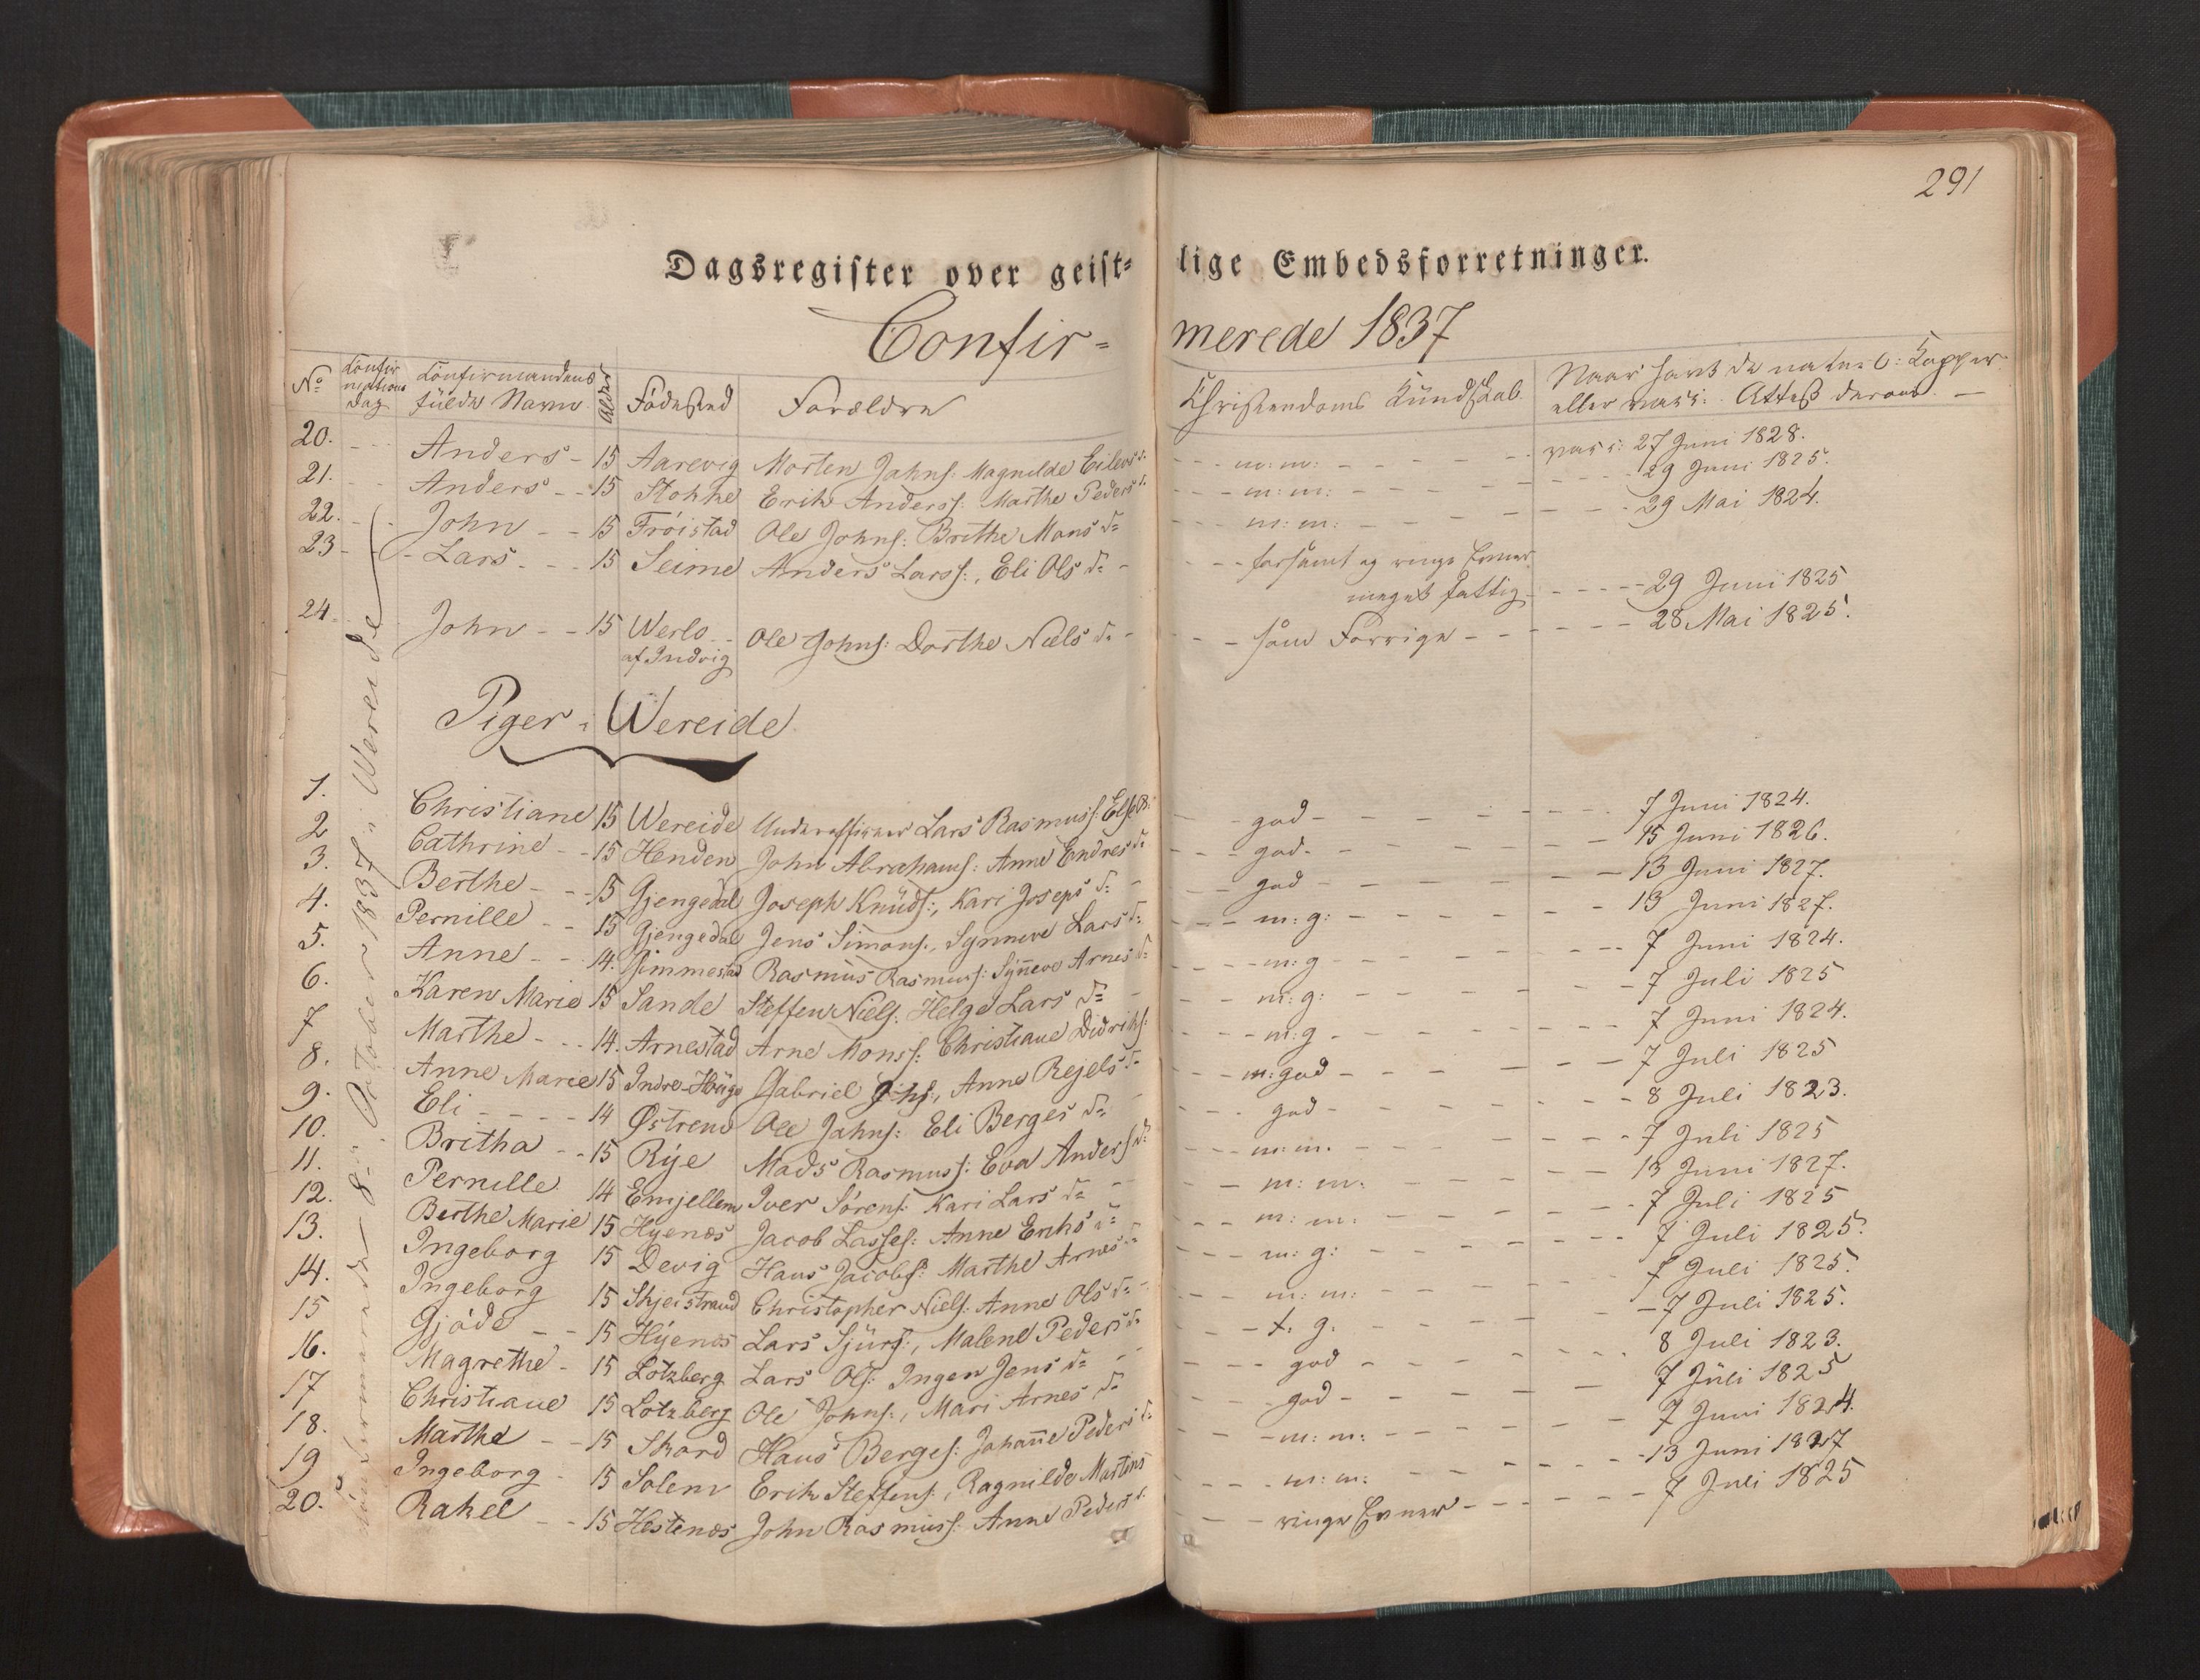 291
Dagsregister over geist= lige Embedsforretninger.
Confir= merede 1837
No Confirmations Dag Confirmandens fulde Navn Alder Fødested Forældre Christendoms Kundskab Naar havt de naturl: Kopper
eller vacc: Attest derom. —
20. Anders – 15 Aarevig Morten Johns: Magnilde Eilevs d: m: m: vacc: 27 Juni 1828.
21. Anders 15 Stokke Erik Anders: Marthe Peders d: m: m: 29 Juni 1825.
22. John 15 Frøistad Ole Johns: Brithe Mons d: m: m: 29 Mai 1824.
23 Lars 15 Seime Anders Larss:, Eli Ols d: forsømt og ringe Evner
meget fattig 29 Juni 1825
24. John 15 Werlo Ole Johns: Dorthe Niels d: som Forrige 28 Mai 1825.
af Indvig
Piger i Wereide
8de October 1837 i Wereide
1. Christiane 15 Wereide Underofficeer Lars Rasmuss: Else god 7 Juni 1824.
2 Cathrine 15 Henden John Abrahams: Anne Endres d: god 15 Juni 1826.
3. Berthe 15 Gjengedal Joseph Knuds:, Kari Joseps d: god 13 Juni 1827.
4. Pernille 15 Gjengedal Jens Simons:, Synneve Lars d: m: g: 13 Juni 1827.
5. Anne 14. Gimmestad Rasmus Rasmuss: Synneve Arnes d: m: g 7 Juni 1824.
6. Karen Marie 15 Sande Steffen Niels: Helge Lars d: m: g: 7 Juli 1825
7 Marthe 14. Arnestad Arne Monss: Christiane Didriks: m: g 7 Juni 1824.
8. Anne Marie 15 Indre-Høge Gabriel Anne Rejels d: m: god 7 Juli 1825
9. Eli 14 Østrem Ole Johns: Eli Berges d: god 8 Juli 1823.
10. Britha 15 Rye Mads Rasmuss: Eva Anders d: m: m. 7 Juli 1825
11. Pernille 14 Emjellem Iver Sørens: Kari Lars d: m: m: 13 Juni 1827.
12. Berthe Marie 15 Hyenæs Jacob Lasses: Anne Eriks d: m: m: 7 Juli 1825
13. Ingeborg 15 Devig Hans Jacobs: Marthe Arnes d: m: g: 7 Juli 1825.
14. Ingeborg 15 Skjeistrand Christopher Niels: Anne Ols d: m: m: 7 Juli 1825.
15 Gjøde 15 Hyenæs Lars Sjurs:, Malene Peders d: t. g. 7 Juli 1825.
16. Magrethe 15 Lotzberg Lars Ols: Ingen Jens d: god 8 Juli 1823.
17 Christiane 15 Lotzberg Ole Johns:, Mari Arnes d: god 7 Juli 1825
18. Marthe 15 Skard Hans Berges: Johanne Peders d: m: m: 7 Juni 1824.
19 Ingeborg 15 Solem Erik Steffens:, Ragnilde Martins m: m: 13 Juni 1827
20. Rakel 15 Hestenæs John Rasmuss: Anne Peders d: ringe Evner 7 Juli 1825